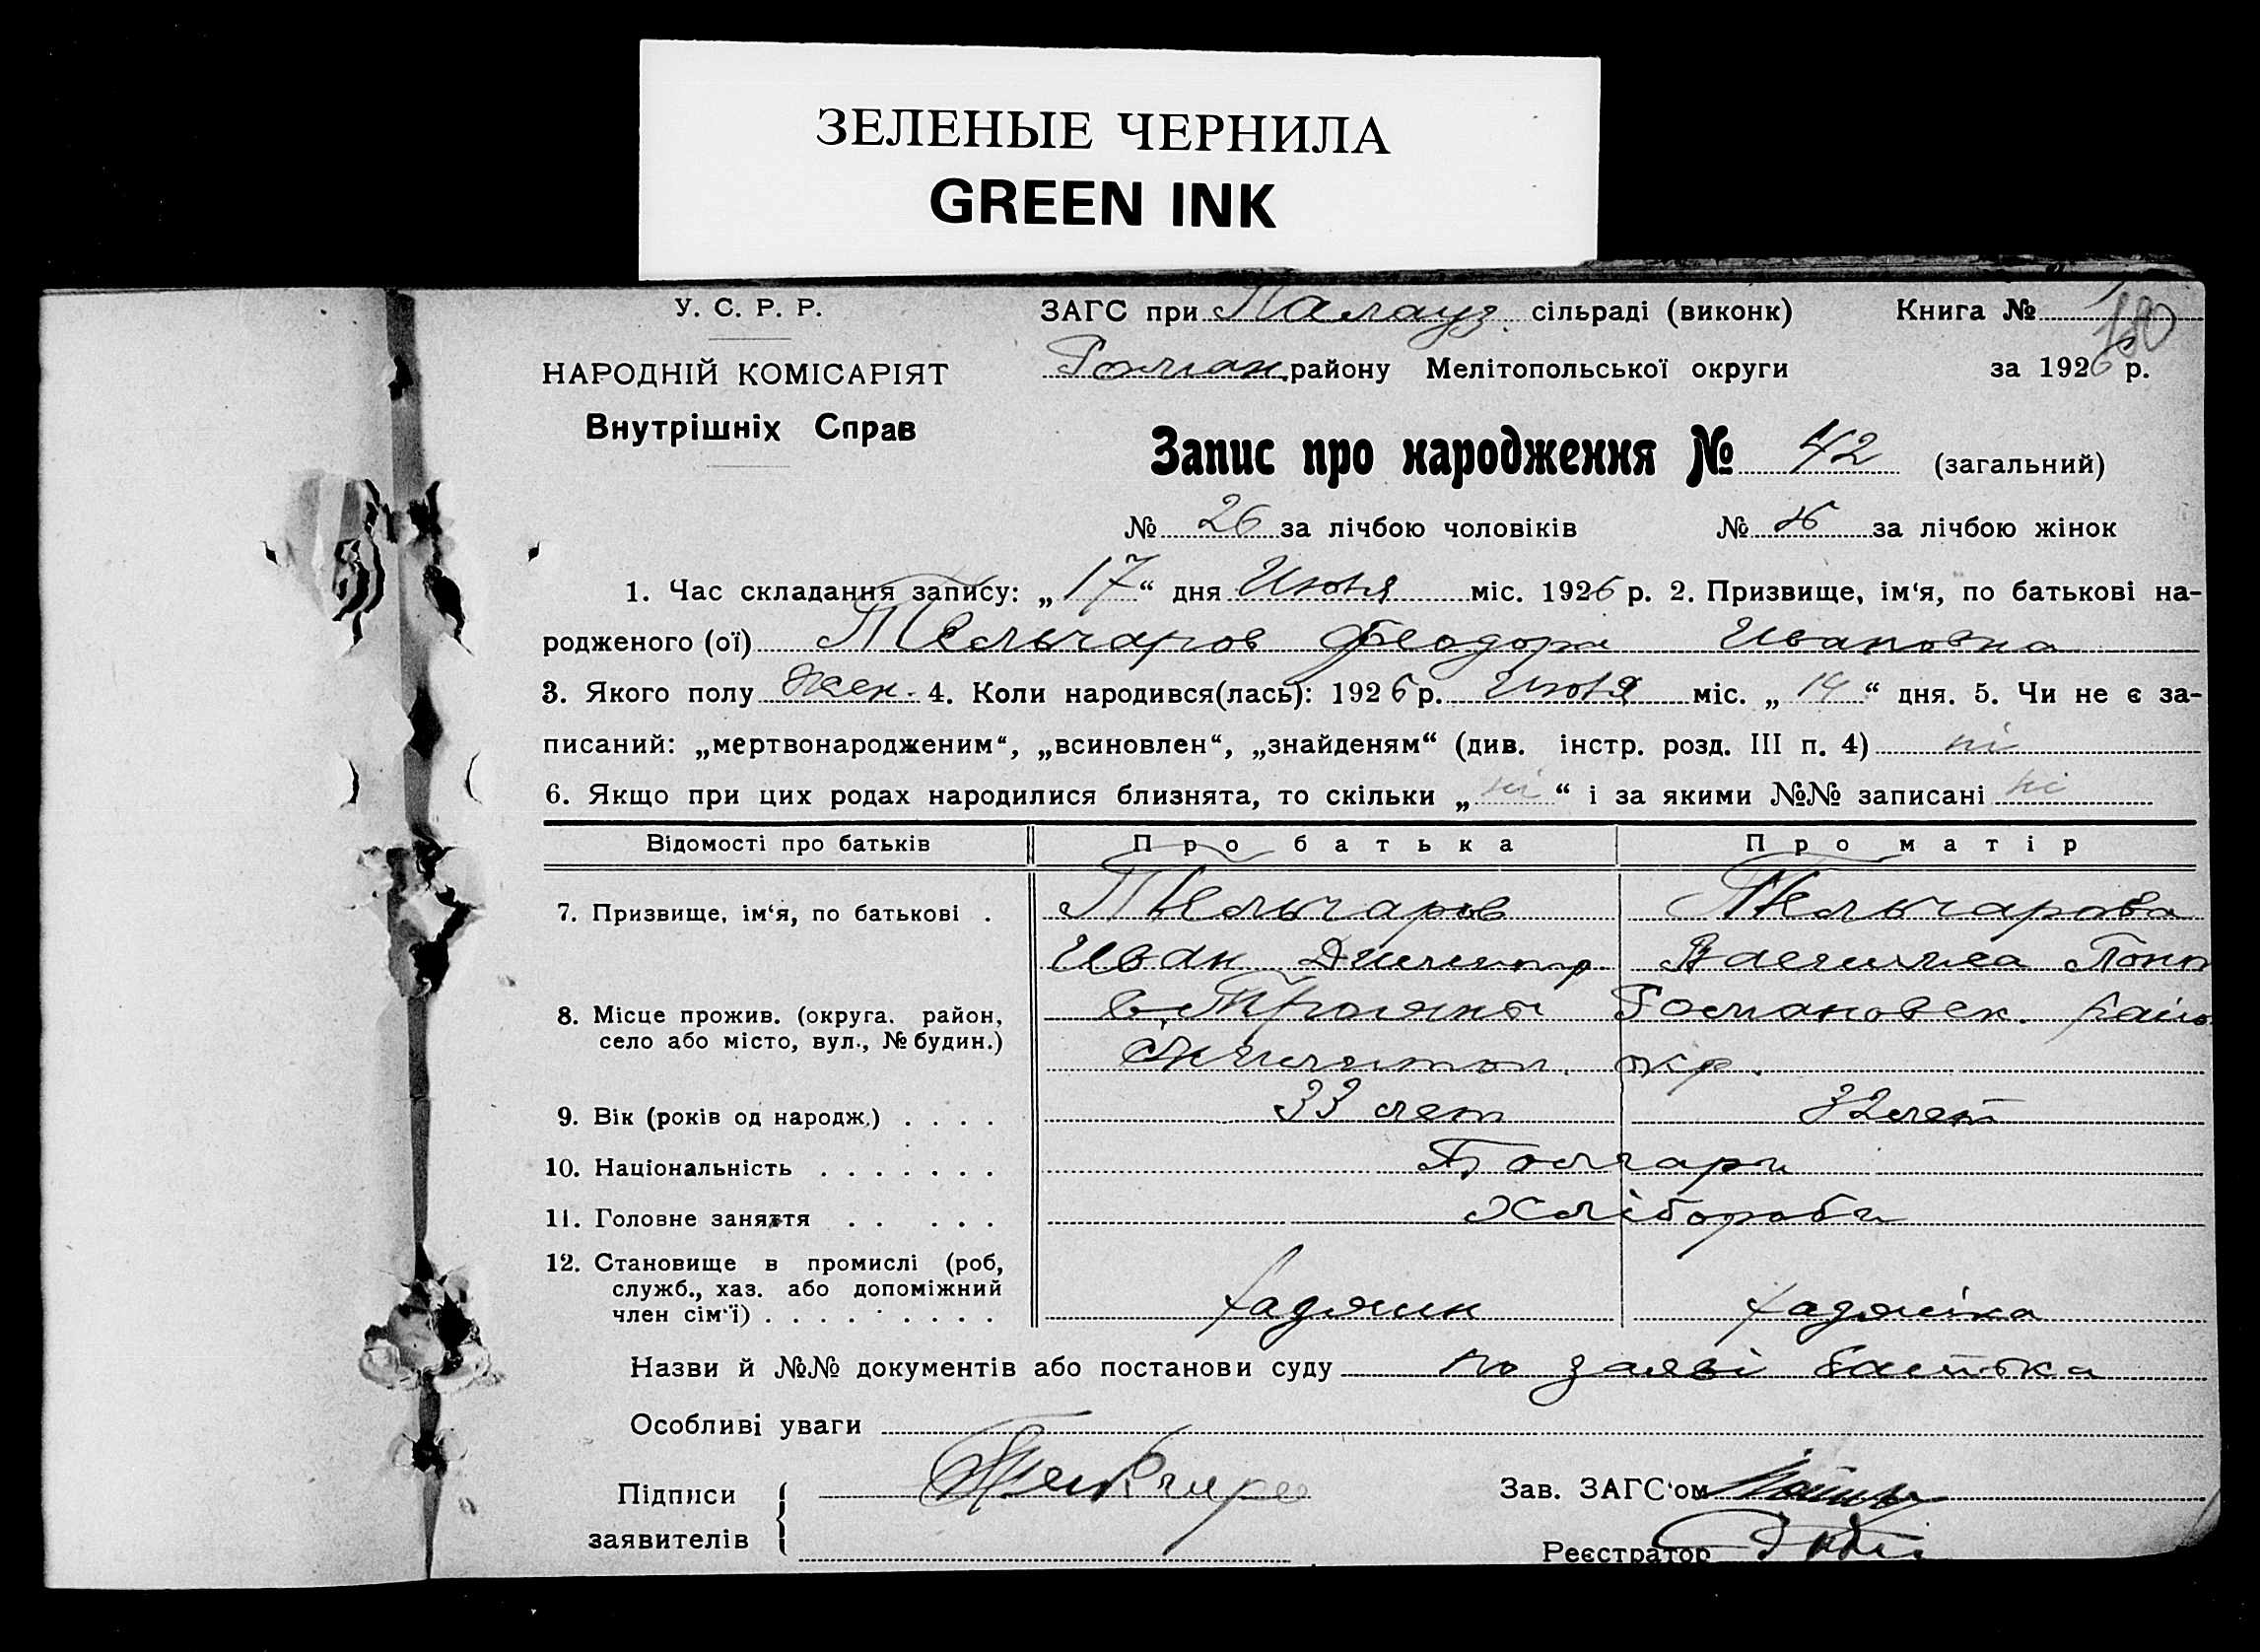 ЗЕЛЕНЫЕ ЧЕРНИЛА
GREEN INK
У. С. Р. Р.
НАРОДНІЙ КОМІСАРІЯТ
Внутрішніх Справ
ЗАГС при Палауз. сільраді (виконк)
Роман. району Мелітопольської округи
Книга №
180
за 1926 р.
Запис про народження № 42 (загальний)
№ 26 за лічбою чоловіків № 16 за лічбою жінок
1. Час складання запису: „17“ дня Июня міс. 1926 р. 2. Призвище, ім‘я, по батькові на-
родженого (ої) Пельчаров Феодора Ивановна
3. Якого полу жен. 4. Коли народився(лась): 1926 р. Июня міс. „14“ дня. 5. Чи не є за-
писаний: „мертвонародженим“, „всиновлен“, „знайденям“ (див. інстр. розд. III п. 4) ні
6. Якщо при цих родах народилися близнята, то скільки „ні“ і за якими №№ записані ні
Відомості про батьків Про батька Про матір
7. Призвище, ім‘я, по батькові . Пельчаров Пельчарова
Иван Дмитр Василиса
8. Місце прожив. (округа. район,
село або місто, вул., № будин.)
с. Трояны Романовск. район
Мелитоп. окр.
9. Вік (років од народж.) . . . . 33 лет 32 лет
10. Національність . . . . . . . Болгари
11. Головне заняття . . . . . Хлібороби
12. Становище в промислі (роб,
служб., хаз. або допоміжний
член сім‘ї) . . . . . . . .
хазяин хазяіка
Назви й №№ документів або постанови суду по заяві батька
Особливі уваги
Підписи
заявителів
Зав. ЗАГС‘ом
Реєстратор